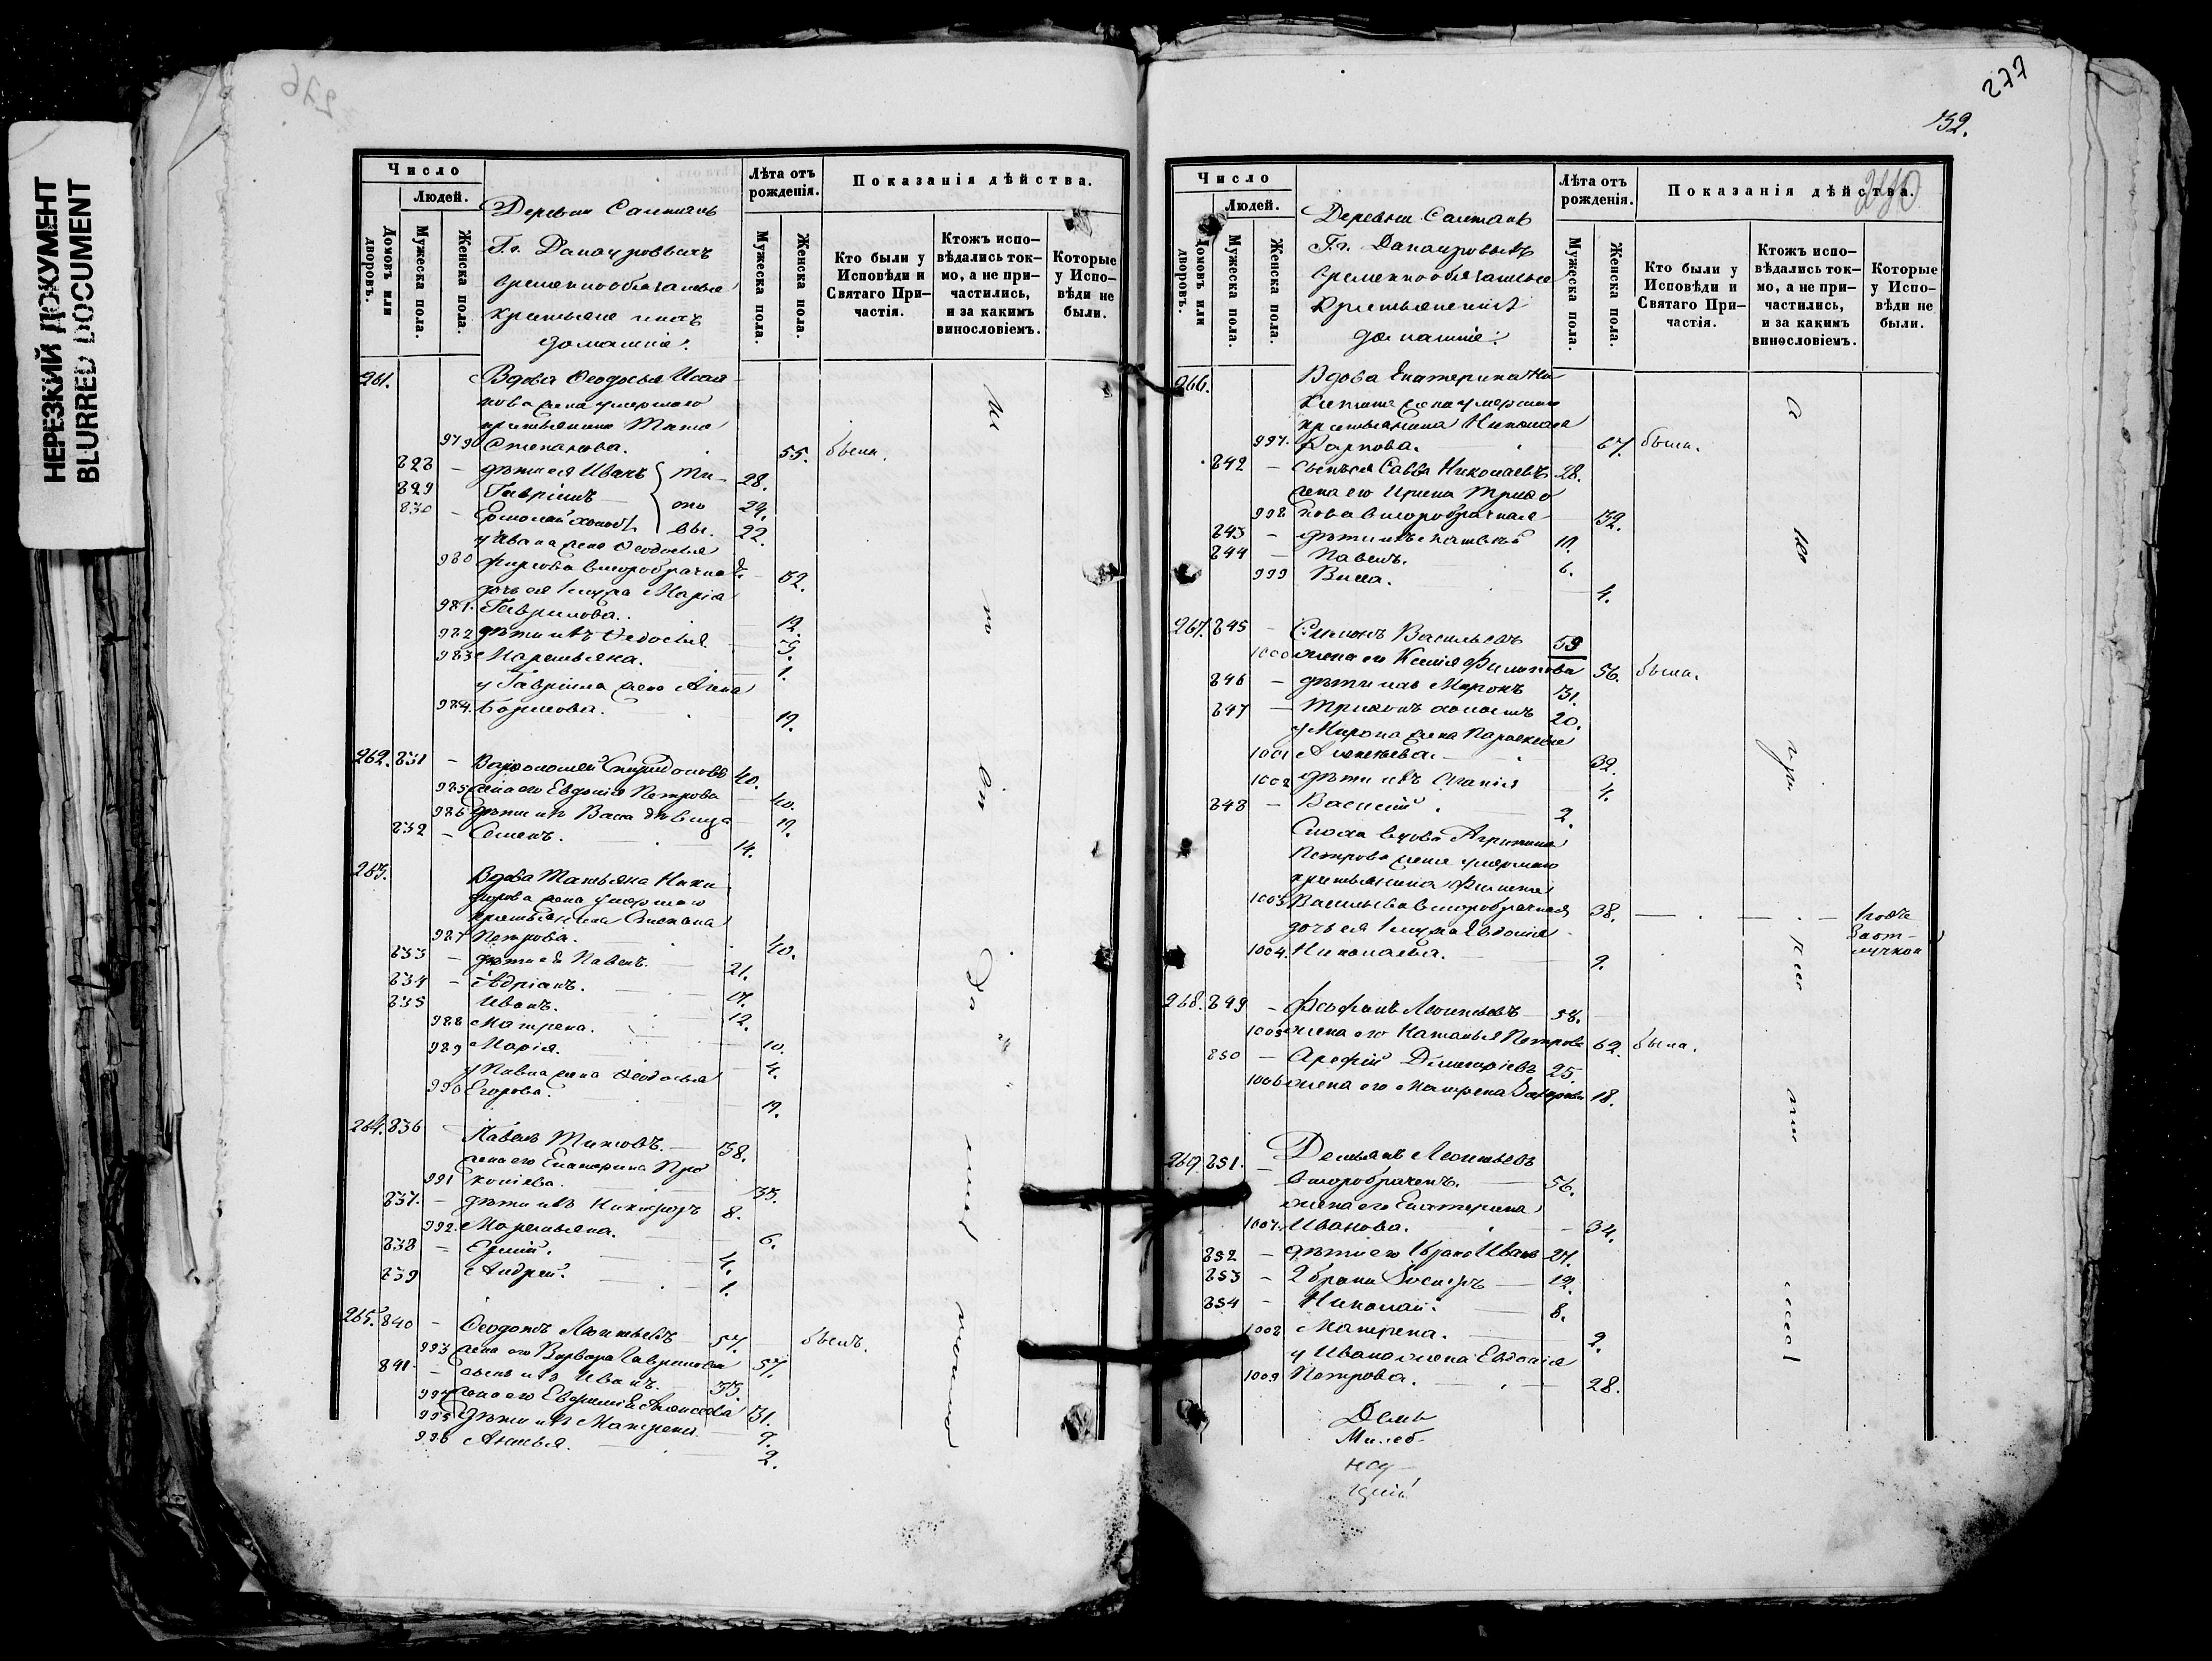 НЕРЕЗКИЙ ДОКУМЕНТ
BLURRED DOCUMENT
276
Число
Людей.
Домовъ или дворовъ.
Мужеска пола.
Женска пола.
Деревни
Гг.
временнообязанные
крестьяне ихъ
домашніе:
Лѣта отъ рожденія.
Мужеска пола.
Женска пола.
Показанія дѣйства.
Кто были у Исповѣди и Святаго Причастія.
Ктожъ исповѣдались токмо, а не причастились, и за какимъ винословіемъ.
Которые у Исповѣди не были.
261. Вдова Ѳеодосья Исаа-
кова жена умершаго
крестьянина Тита
979 Степанова. 55. была.
828 – дѣти ея Иванъ Ти- 28.
829 Гавріилъ то 24.
830 – Ермолай холостъ вы. 22.
у Ивана жена Ѳеодосья
980 второбрачная 32.
дочь ея 1 мужа Марія
981. Гаврилова. 12.
982 дѣти ихъ Ѳедосья 3.
983 Маремьяна. 1.
у Гавріила жена Анна
984. Борисова. 19.
262. 831 – Варѳоломей Спиридоновъ 40.
985 жена его Евдокія Петрова 40.
986 дѣти ихъ Васса дѣвица 19.
832 – Семенъ. 14.
263. Вдова Татьяна Ники-
форова жена умершаго
крестьянина Степана
987 Петрова. 40.
833 – дѣти ея Павелъ. 21.
834 – Адріанъ. 17.
835 Иванъ. 12.
988 Матрена. 10.
989 Марія. 4.
у Павла жена Ѳеодосья
990 Егорова. 19.
264. 836 Павелъ Титовъ. 38.
жена его Екатерина Про-
991 копіева. 35.
837. – дѣти ихъ Никифоръ 8.
992. Маремьяна. 6.
838 – Ермій. 4.
839 Андрей. 1.
265. 840 – Ѳеодотъ Леонтьевъ 57. былъ.
993 жена его Варвара Гаврилова 57.
841 – сынъ ихъ Иванъ. 33.
994 жена его Евфимія Алексѣева 31.
995 дѣти ихъ Матрена. 9.
996 Анисья. 2.
277
132.
Число
Людей.
Домовъ или дворовъ.
Мужеска пола.
Женска пола.
Деревни
Гг.
временнообязанные
крестьяне ихъ
домашніе:
Лѣта отъ рожденія.
Мужеска пола.
Женска пола.
Показанія дѣйства.
Кто были у Исповѣди и Святаго Причастія.
Ктожъ исповѣдались токмо, а не причастились, и за какимъ винословіемъ.
Которые у Исповѣди не были.
266. Вдова Екатерина Ни-
китина жена умершаго
крестьянина Николая
997. Карпова. 67. была.
842 – сынъ ея Савва Николаевъ 28.
жена его Ирина Трифо
998 нова второбрачная 32.
843 – дѣти ихъ Матвѣй 11.
844 – Павелъ. 6.
999 Васса. 4.
267. 845 – Симонъ Васильевъ 53
1000 жена его Ксенія Филипова 56. была.
846 – дѣти ихъ Миронъ 31.
847 – Трифонъ холостъ 20.
у Мирона жена Параскева
1001 32.
1002 дѣти ихъ Агапія 4.
848 – Василій. 2.
Сноха вдова Агрипина
Петрова жена умершаго
крестьянина Филипа
1003 Васильева второбрачная 38.
дочь ея 1 мужа Евдокія
1004. Николаева. 9.
за от-
лучкою
268. 849 – Ѳеофанъ Леонтьевъ 58.
1005 жена его Наталья Петрова 62. была.
850 – Арефій Димитріевъ 25.
1006 жена его Матрена Захарова 18.
269 851. – Демьянъ Леонтьевъ
второбраченъ. 56.
жена его Екатерина
1007. Иванова. 34.
852 – дѣти его 1 брака Иванъ 27.
853 – 2 брака Іосифъ 12.
854 – Николай. 8.
1008 Матрена. 2.
у Ивана жена Евдокія
1009 Петрова. 28.